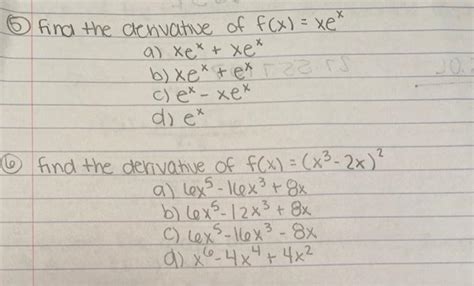 ⑤ find the derivative of f(x) = xeˣ
a) xeˣ + xeˣ
b) xeˣ + eˣ
c) eˣ - xeˣ
d) eˣ
⑥ find the derivative of f(x) = (x³ - 2x)²
a) 6x⁵ - 16x³ + 8x
b) 6x⁵ - 12x³ + 8x
c) 6x⁵ - 16x³ - 8x
d) x⁶ - 4x⁴ + 4x²